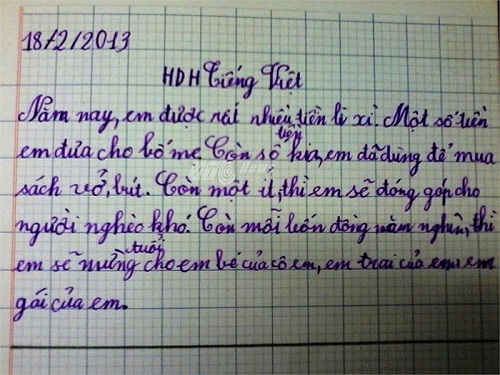 18/2/2013
HDH Tiếng Việt
Năm nay, em được rất nhiều tiền lì xì. Một số tiền
em đưa cho bố mẹ. Còn số tiền kia, em đã dùng để mua
sách vở, bút. Còn một ít, thì em sẽ đóng góp cho
người nghèo khó. Còn mỗi bốn đồng năm nghìn, thì
em sẽ mừng tuổi cho em bé của cô em, em trai của em, em
gái của em.